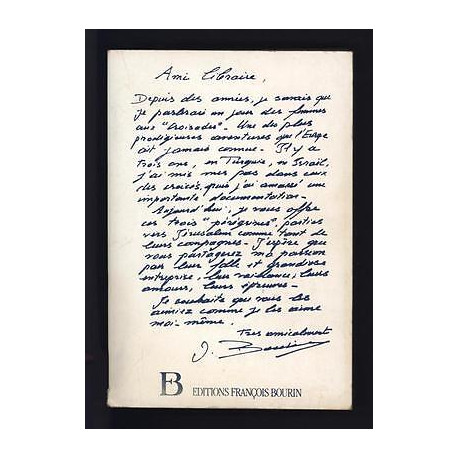 Ami libraire,
Depuis des années, je savais que
je parlerai un jour des femmes
aux "Croisades". Une des plus
prodigieuses aventures que l'Europe
ait jamais connue. Il y a
trois ans, en Turquie, en Israël,
j'ai mis mes pas dans ceux
des croisés, puis j'ai amassé une
importante documentation.
Aujourd'hui, je vous offre
ces trois "pérégrines", parties
vers Jérusalem comme tant de
leurs compagnes. J'espère que
vous partagerez ma passion
pour leur folle et grandiose
entreprise, leur vaillance, leurs
amours, leurs épreuves.
Je souhaite que vous les
aimiez comme je les aime
moi-même.
Très amicalement
J.
B EDITIONS FRANÇOIS BOURIN